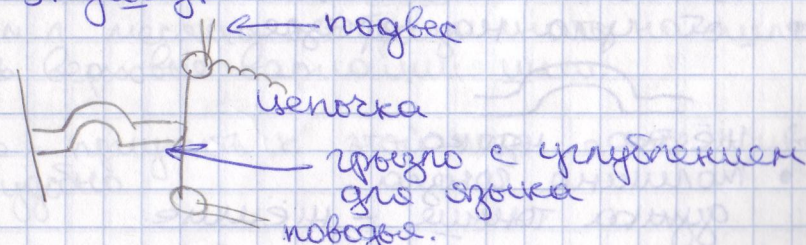 подвес
цепочка
грызло с углублением
для языка
поводья.